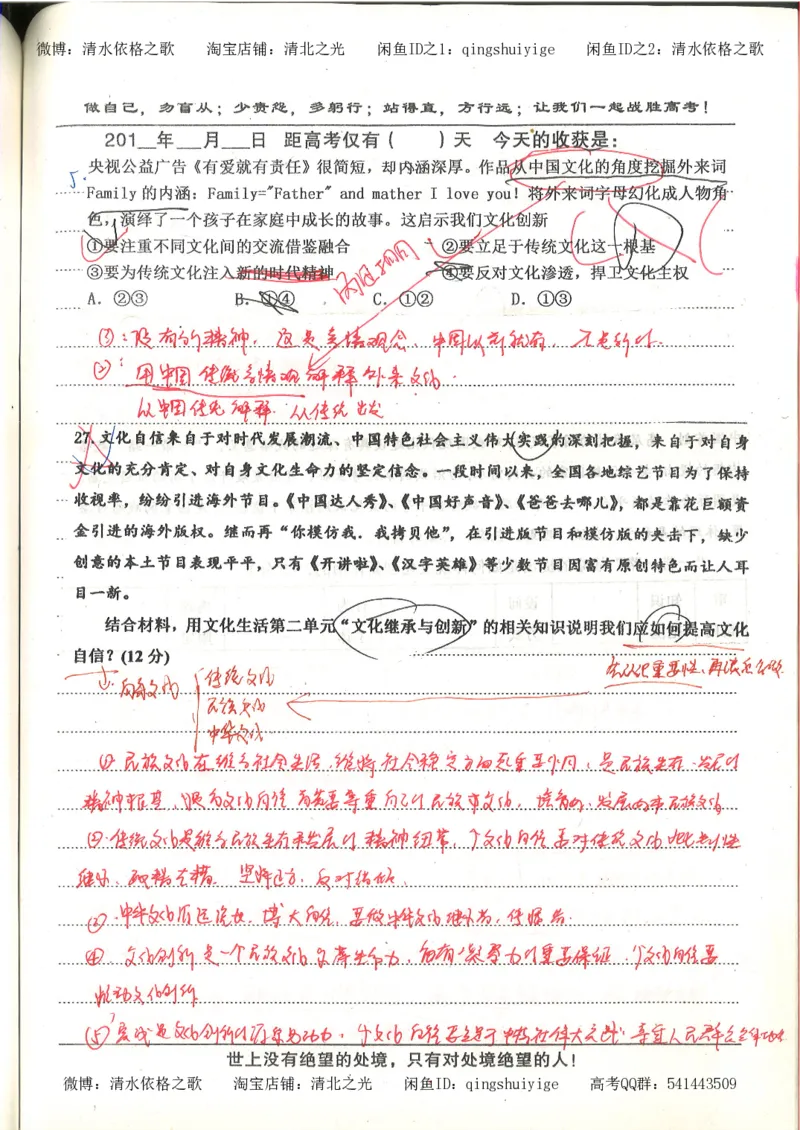 微博：清水依格之歌 淘宝店铺：清北之光 闲鱼ID之1：qingshuiyige 闲鱼ID之2：清水依格之歌
做自己，勿盲从；少责怨，多躬行；站得直，方行远；让我们一起战胜高考！
201__年___月___日 距高考仅有（ ）天 今天的收获是：
5. 央视公益广告《有爱就有责任》很简短，却内涵深厚。作品从中国文化的角度挖掘外来词
Family 的内涵：Family="Father" and mather I love you！将外来词字母幻化成人物角
色，演绎了一个孩子在家庭中成长的故事。这启示我们文化创新
①要注重不同文化间的交流借鉴融合 ②要立足于传统文化这一根基
③要为传统文化注入新的时代精神 ④要反对文化渗透，捍卫文化主权
A. ②③ B. ①④ C. ①② D. ①③
③：没有新的精神，这是亲情观念，中国以前就有，不是新时
②：用中国传统亲情观解释外来文化.
从中国传统解释 从传统出发
27、文化自信来自于对时代发展潮流、中国特色社会主义伟大实践的深刻把握，来自于对自身
文化的充分肯定、对自身文化生命力的坚定信念。一段时间以来，全国各地综艺节目为了保持
收视率，纷纷引进海外节目。《中国达人秀》、《中国好声音》、《爸爸去哪儿》，都是靠花巨额资
金引进的海外版权。继而再“你模仿我．我拷贝他”，在引进版节目和模仿版的夹击下，缺少
创意的本土节目表现平平，只有《开讲啦》、《汉字英雄》等少数节目因富有原创特色而让人耳
目一新。
结合材料，用文化生活第二单元“文化继承与创新”的相关知识说明我们应如何提高文化
自信？(12 分)
传统文化
民族文化
中华文化
① 民族文化在维系社会生活、维持社会稳定方面起重要作用，是民族生存、发展的
精神根基
②.传统文化是维系民族生存和发展的精神纽带，
继承，取精去糟
③.中华文化源远流长、博大精深，要做中华文化
④ 文化创新是一个民族文化 生命力，富有凝聚力的重要保证，文化自信要
推动文化创新
⑤ 实践是文化创新的 动力，
世上没有绝望的处境，只有对处境绝望的人！
微博：清水依格之歌 淘宝店铺：清北之光 闲鱼ID：qingshuiyige 高考QQ群：541443509